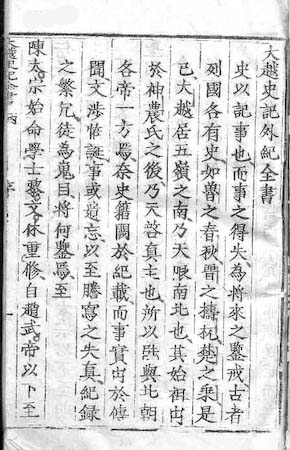 大越史記外紀全書
史以記事也而事之得失為將來之鑒戒古者
列國各有史如魯之春秋晋之檮杌楚之乘是
已大越居五嶺之南乃天限南北也其始祖出
於神農氏之後乃天啓真主也所以能與北朝
各帝一方焉奈史籍闕於紀載而事實出於傳
聞文涉恠誕事或遺忘以至謄寫之失真紀錄
之繁冗徒為嵬目將何鑒焉至
陳太宗始命學士黎文休重修自趙武帝以下至